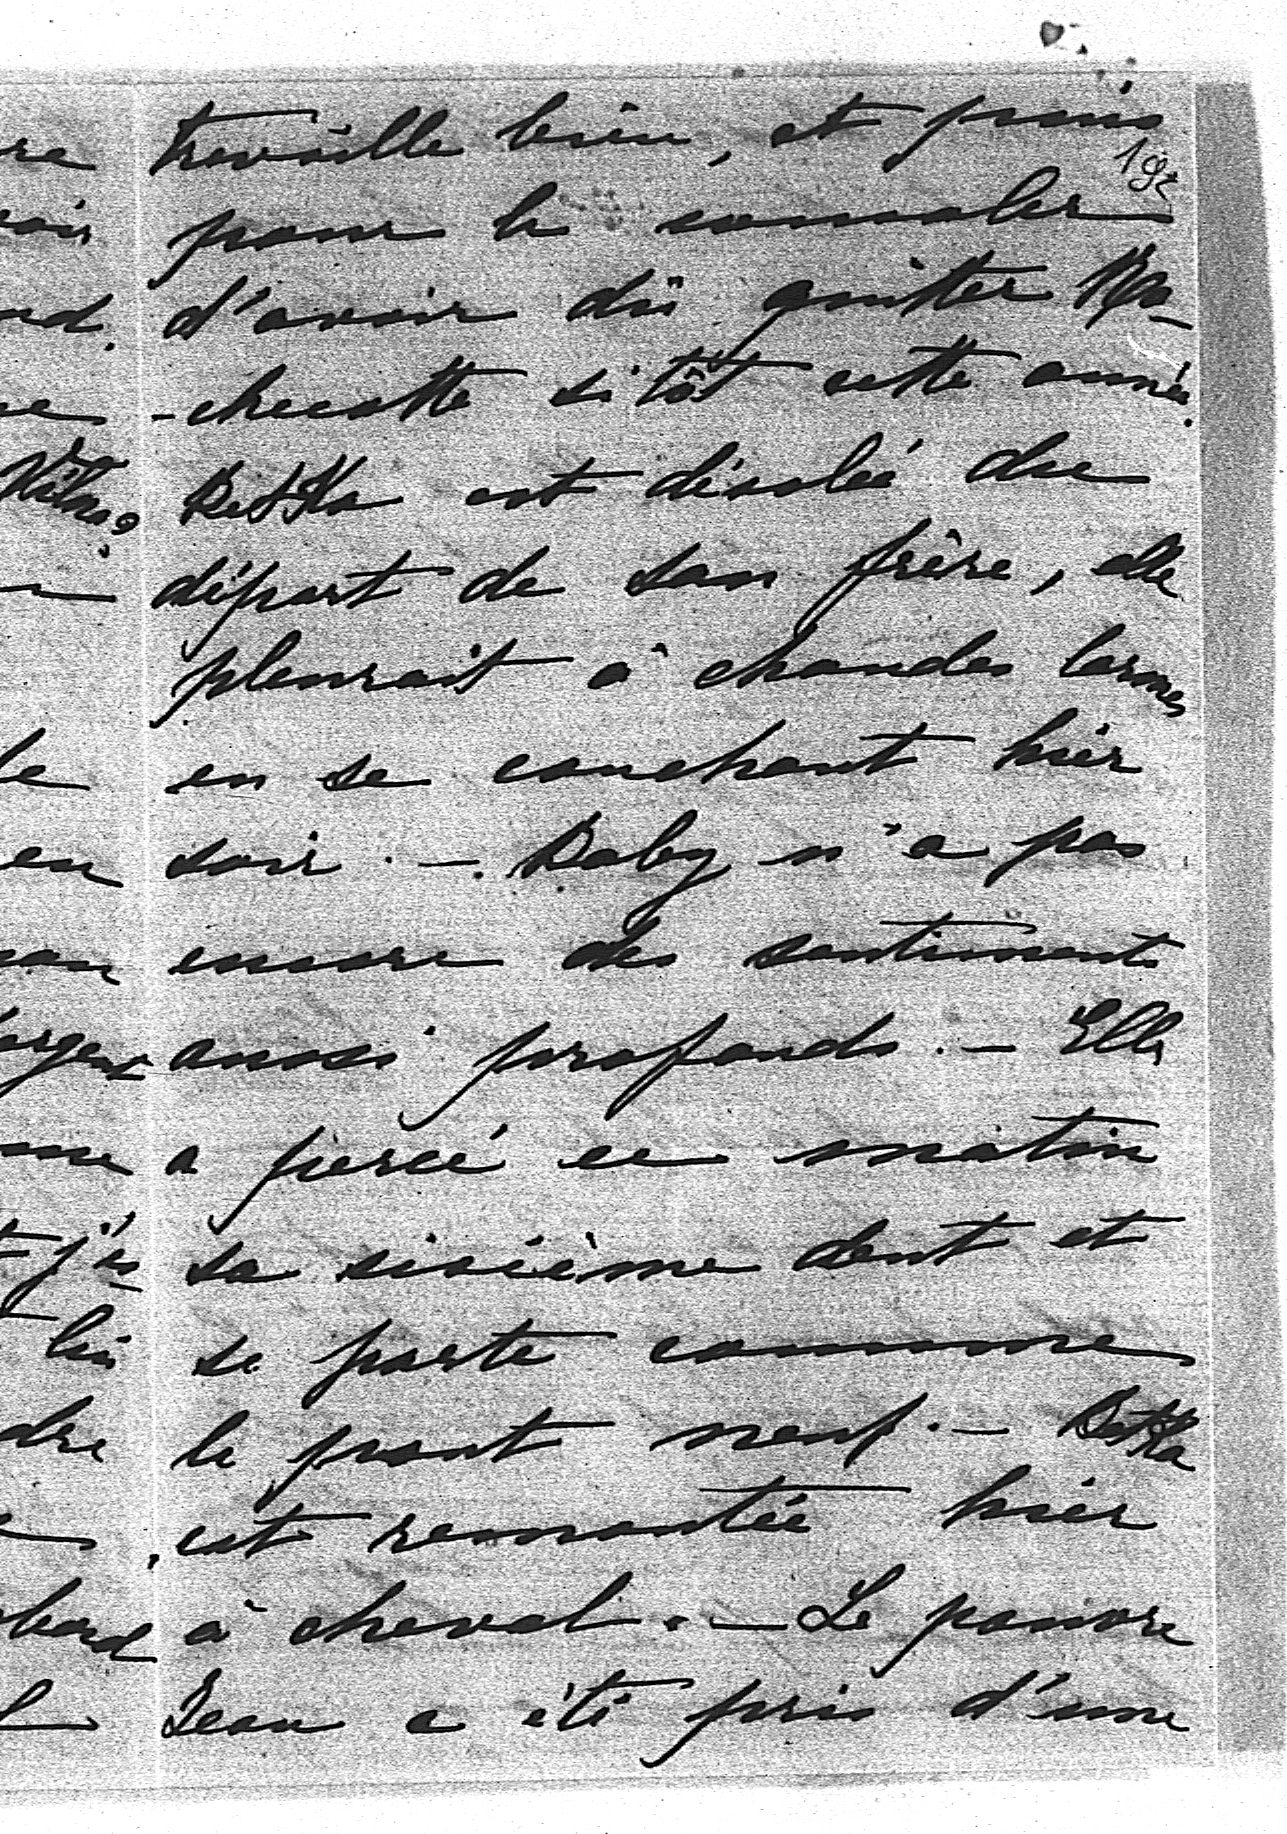 travaille bien, et puis
192
pour le consoler
d'avoir dû quitter Ro-
-checotte si tôt cette année.
Betka est désolée du
départ de son frère, elle
pleurait à chaudes larmes
en se couchant hier
soir. — Baby n'a pas
encore des sentiments
aussi profonds. — Elle
a percé ce matin
sa sixième dent et
se porte comme
le pont neuf. — Betka
est remontée hier
à cheval. — Le pauvre
Jean a été pris d'une